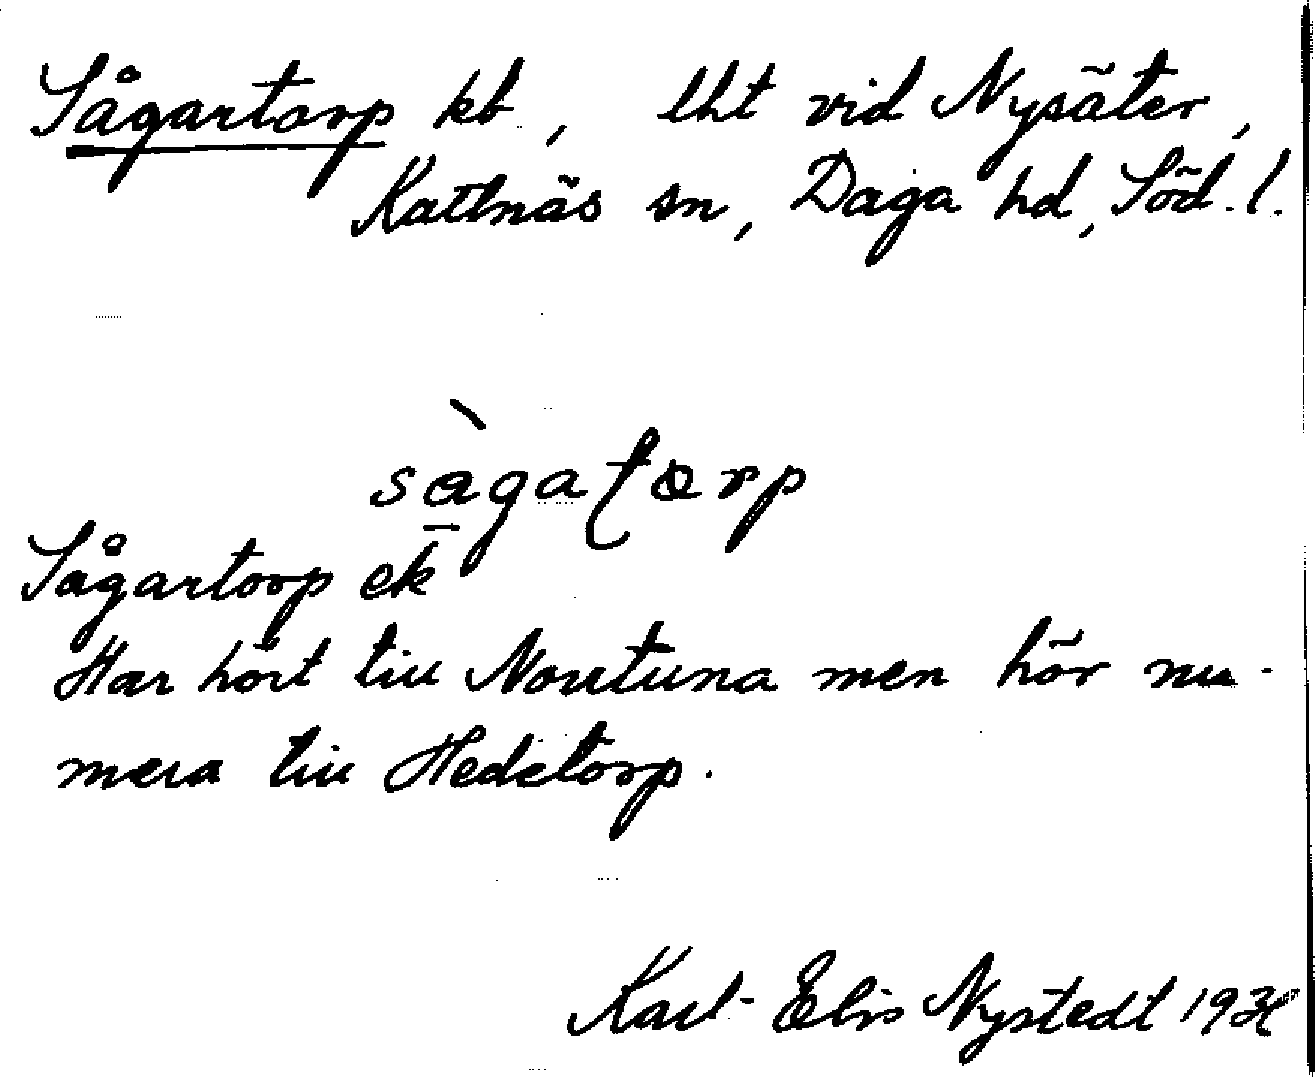 Sågartorp kb, lht vid Nysäter,
Kattnäs sn, Daga hd, Söd. l.
sàgatorp
Sågartorp ek
Har hört till Norrtuna men hör nu-
mera till Hedetorp.
Karl-Elis Nystedt